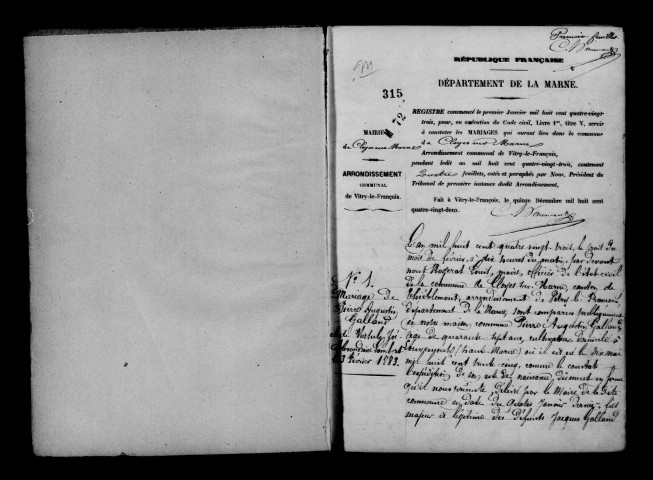 Premier feuillet
RÉPUBLIQUE FRANÇAISE
DÉPARTEMENT DE LA MARNE.
M
315
72
REGISTRE commencé le premier Janvier mil huit cent quatre-vingt-
trois, pour, en exécution du Code civil, Livre 1er, titre V, servir
à constater les MARIAGES qui auront lieu dans la commune
de Cloyes-sur-Marne
Arrondissement communal de Vitry-le-François,
pendant ledit an mil huit cent quatre-vingt-trois, contenant
quatre feuillets, cotés et paraphés par Nous, Président du
Tribunal de première instance dudit Arrondissement.
Fait à Vitry-le-François, le quinze Décembre mil huit cent
quatre-vingt-deux.
MAIRIE
de Cloyes-sur-Marne
ARRONDISSEMENT
COMMUNAL
de Vitry-le-François.
N° 1.
Mariage de
Pierre Augustin
Galland
3 février 1883.
L'an mil huit cent quatre-vingt-trois, le trois du
mois de février, à dix heures du matin, par devant
nous Louis, maire, officier de l'état civil
de la commune de Cloyes-sur-Marne, canton de
Thiéblemont, arrondissement de Vitry-le-François,
département de la Marne, sont comparus publiquement
en notre maison commune Pierre Augustin Galland,
âgé de quarante sept ans, cultivateur, domicilié à
(haute Marne) où il est né le dix mai
mil huit cent trente cinq, comme le constate
l'expédition de son acte de naissance, dûment en forme
qu'il nous a délivré par le Maire de la dite
commune en date du quatre Janvier dernier, fils
majeur et légitime des défunts Jacques Galland